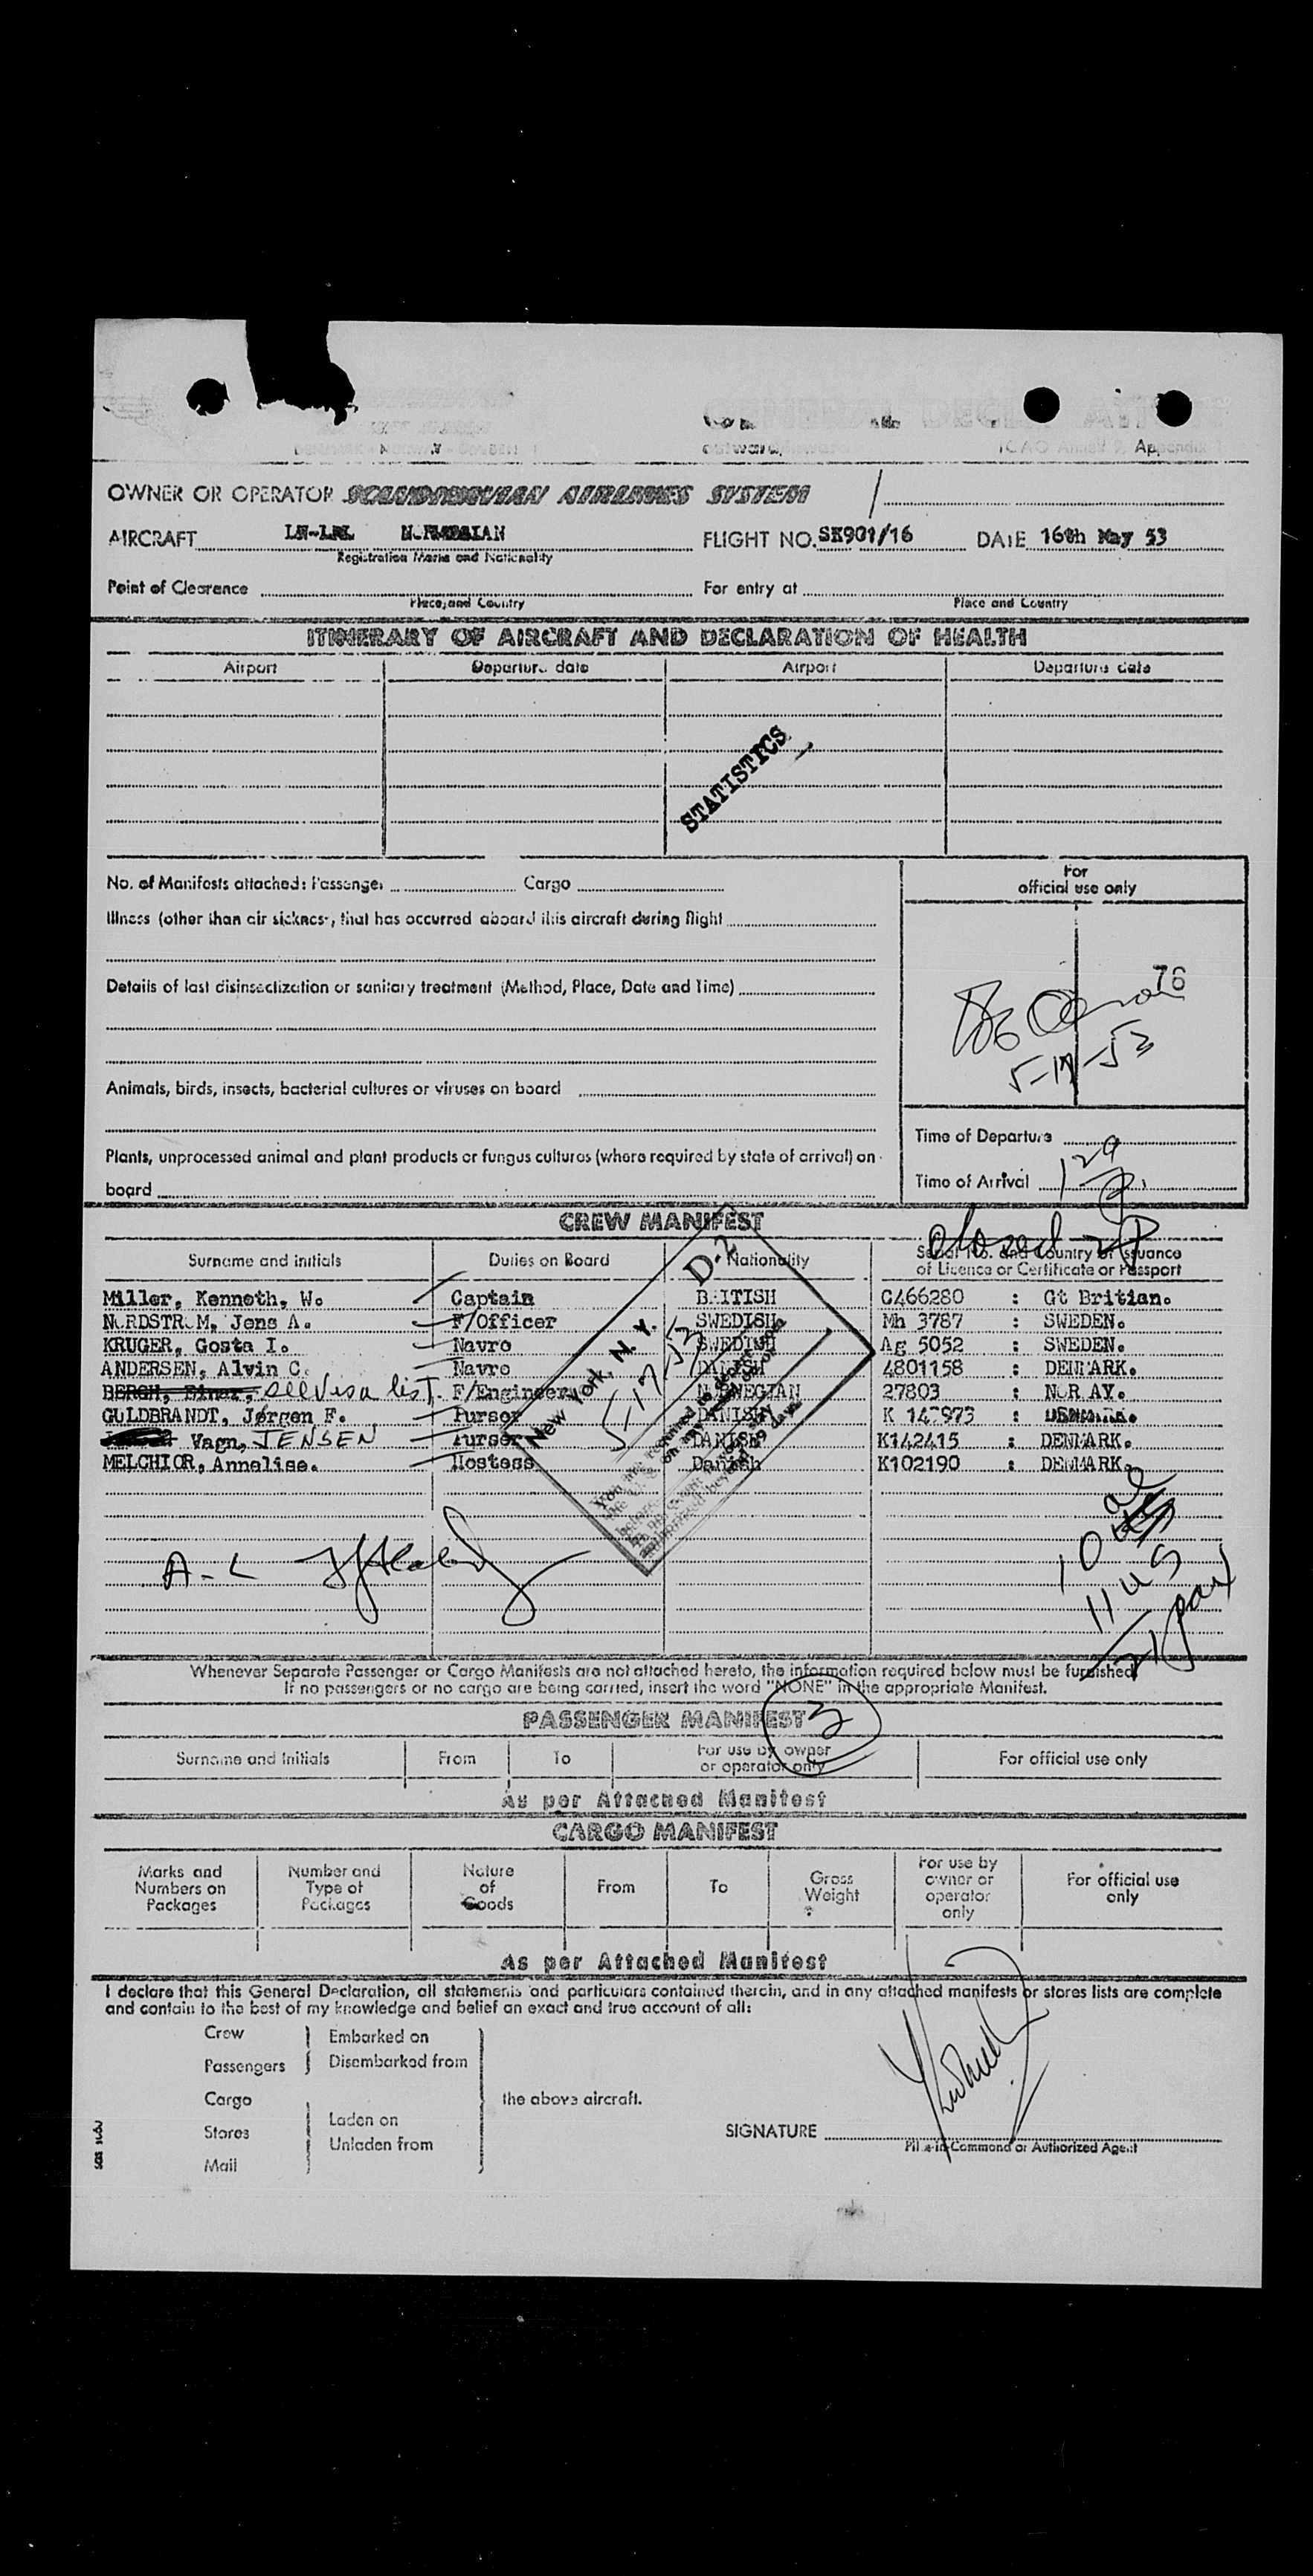 outward
ICAO Annex 9, Appendix
OWNER OR OPERATOR SCANDINAVIAN AIRLINES SYSTEM
AIRCRAFT FLIGHT NO. SK901/16 DATE 16th May 53
Registration Marks and Nationality
Point of Clearance For entry at
Place and Country Place and Country
ITINERARY OF AIRCRAFT AND DECLARATION OF HEALTH
Airport Departure date Airport Departure date
STATISTICS
No. of Manifests attached: Passenger Cargo
For
official use only
Illness (other than air sickness, that has occurred aboard this aircraft during flight
76
Details of last disinsectization or sanitary treatment (Method, Place, Date and Time)
5-17-53
Animals, birds, insects, bacterial cultures or viruses on board
Time of Departure
Plants, unprocessed animal and plant products or fungus cultures (where required by state of arrival) on
board
Time of Arrival
CREW MANIFEST
Surname and initials Duties on Board Nationality Serial No. and Country of Issuance
of Licence or Certificate or Passport
Miller, Kenneth, W. Captain BRITISH C466280 : Gt Britian.
NORDSTROM, Jens A. F/Officer SWEDISH Mh 3787 : SWEDEN.
KRUGER, Gosta I. Navro SWEDISH Ag 5052 : SWEDEN.
ANDERSEN, Alvin C. Navro DANISH 4801158 : DENMARK.
BERGH, Einar, see Visa list. F/Engineer NORWEGIAN 27803 : NORWAY.
GULDBRANDT, Jørgen F. Purser DANISH K 142973 : DENMARK.
Vagn, JENSEN Purser DANISH K142415 : DENMARK.
MELCHIOR, Annelise. Hostess Danish K102190 : DENMARK.
D-2
New York, N. Y.
5-17-53
A-L
11 US
Whenever Separate Passenger or Cargo Manifests are not attached hereto, the information required below must be furnished
If no passengers or no cargo are being carried, insert the word "NONE" in the appropriate Manifest.
PASSENGER MANIFEST
Surname and Initials From To For use by owner
or operator only For official use only
As per Attached Manifest
CARGO MANIFEST
Marks and
Numbers on
Packages
Number and
Type of
Packages
Nature
of
Goods
From
To
Gross
Weight
For use by
owner or
operator
only
For official use
only
As per Attached Manifest
I declare that this General Declaration, all statements and particulars contained therein, and in any attached manifests or stores lists are complete
and contain to the best of my knowledge and belief an exact and true account of all:
Crew Embarked on
Passengers Disembarked from
Cargo the above aircraft.
Stores Laden on
Unladen from
Mail
SIGNATURE
Pilot-in-Command or Authorized Agent